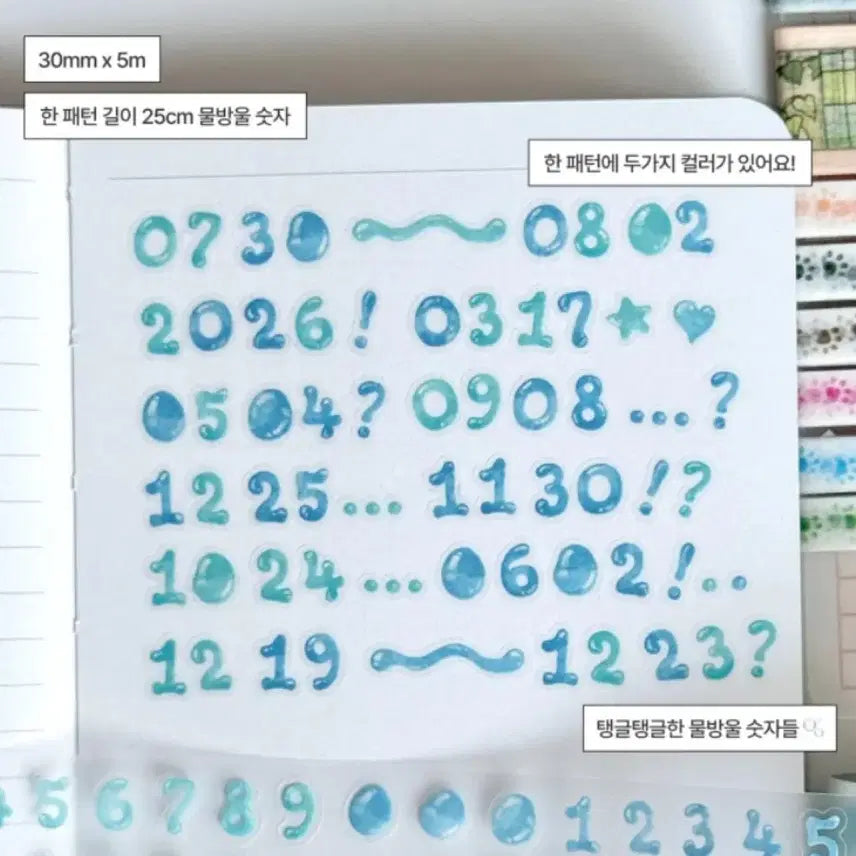 30mm x 5m
한 패턴 길이 25cm 물방울 숫자
한 패턴에 두가지 컬러가 있어요!
0730 ~ 0802
2026! 0317
0504? 0908...?
1225... 1130!?
1024... 0602!..
1219 ~ 1223?
탱글탱글한 물방울 숫자들
4 5 6 7 8 9 1 2 3 4 5